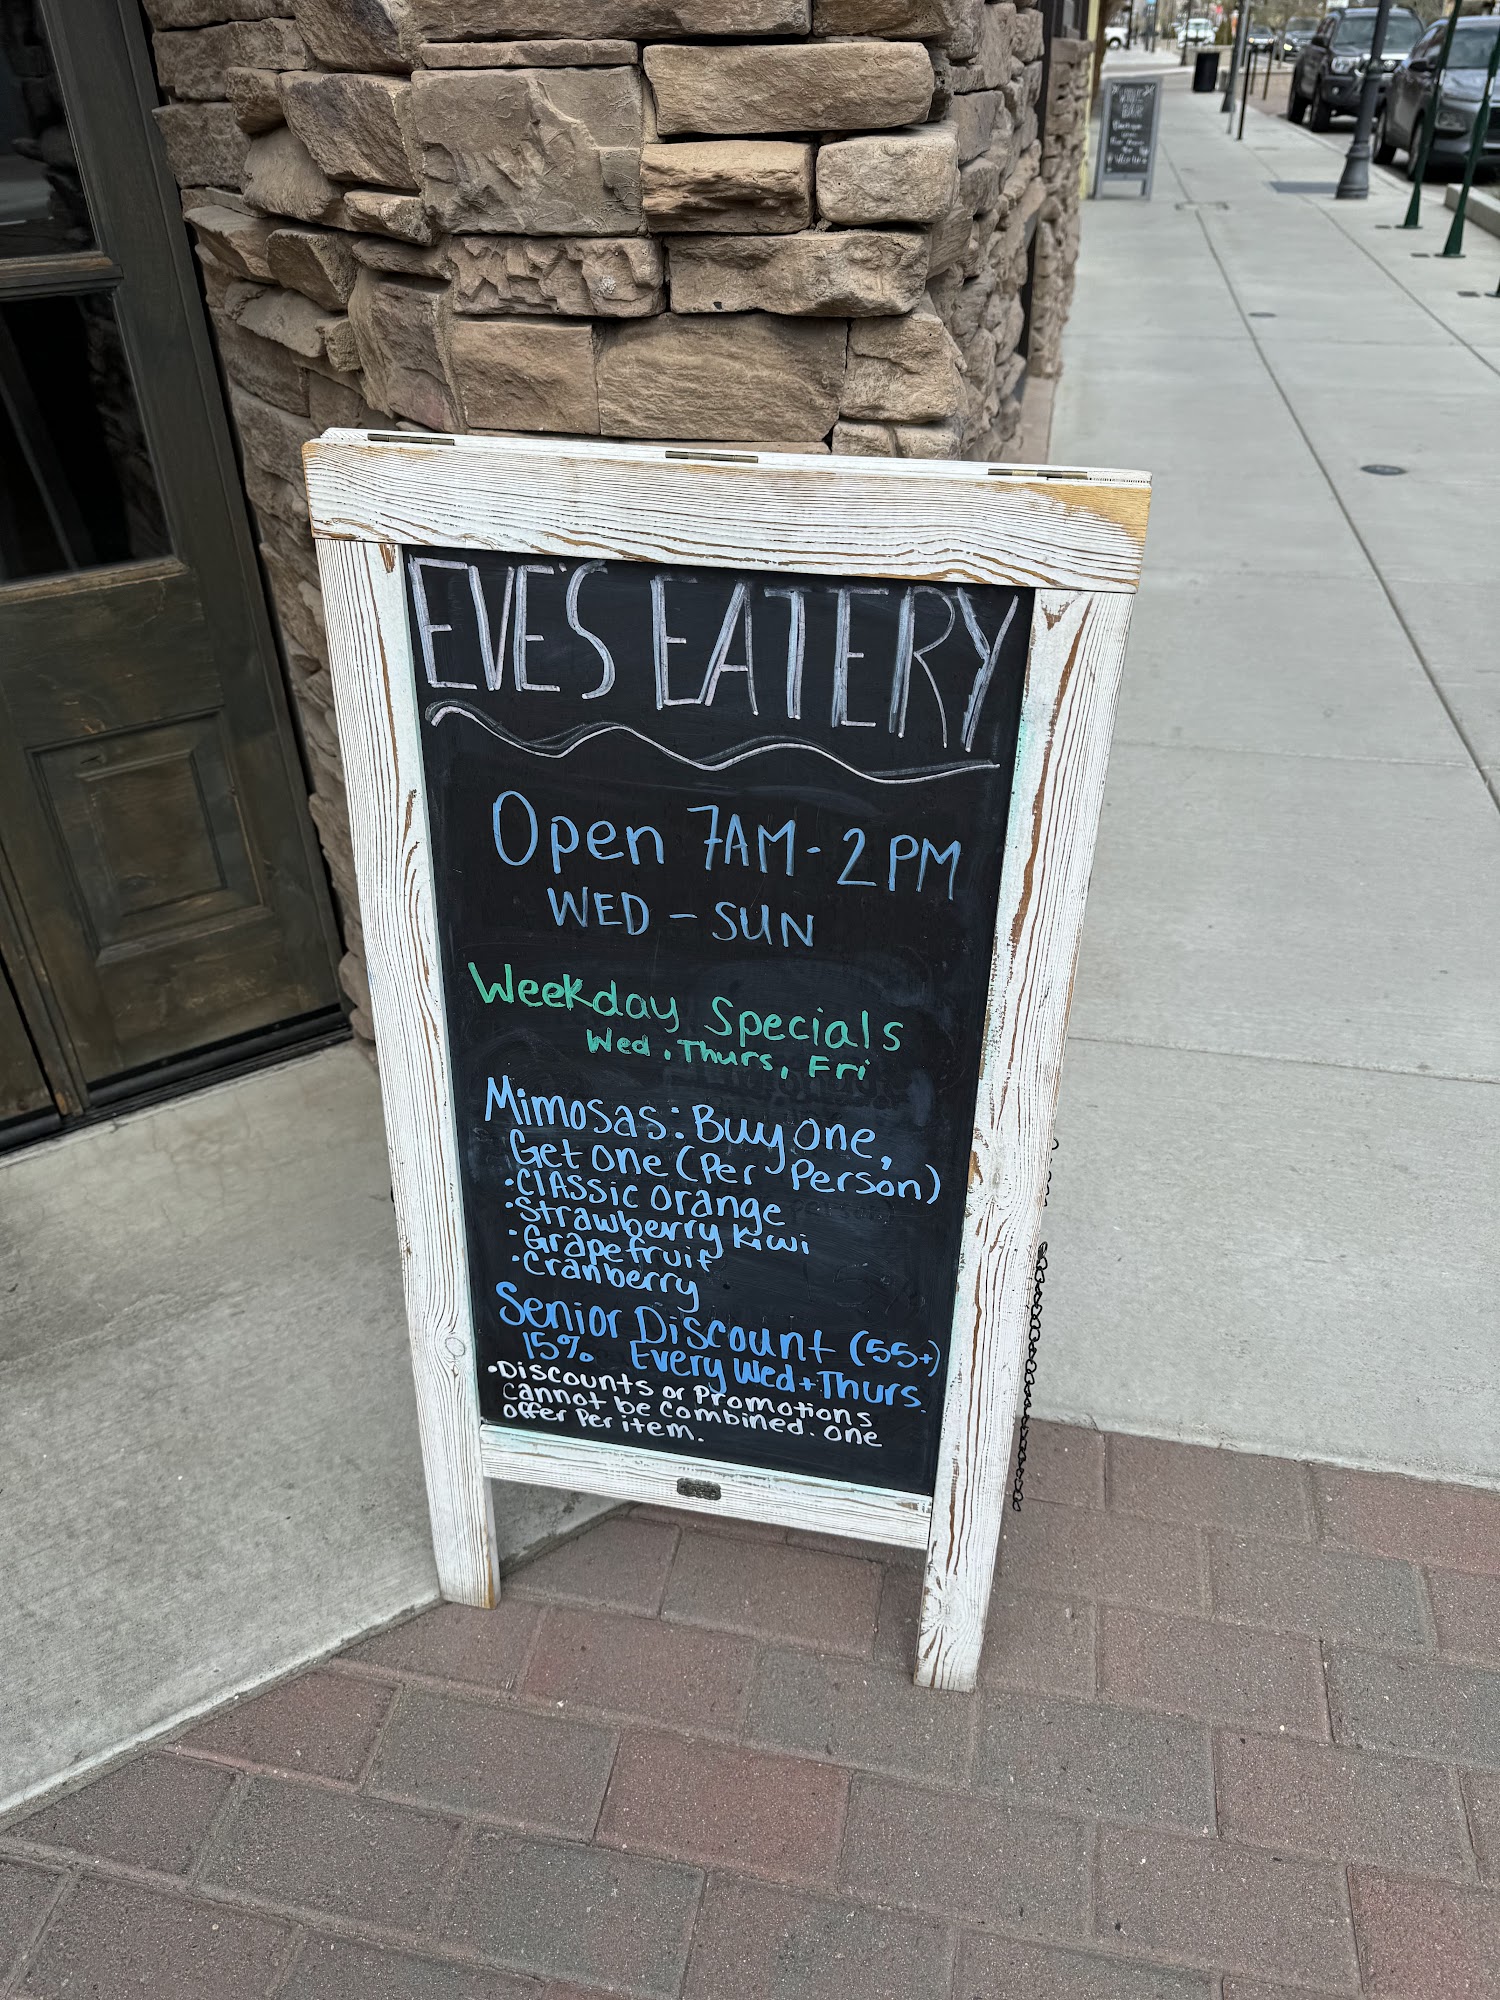 EVE'S EATERY
Open 7AM - 2PM
WED - SUN
Weekday Specials
Wed, Thurs, Fri
Mimosas: Buy one,
Get one (Per Person)
• Classic orange
• Strawberry kiwi
• Grapefruit
• Cranberry
Senior Discount (55+)
15% Every Wed + Thurs.
• Discounts or Promotions
cannot be combined. one
offer Per item.